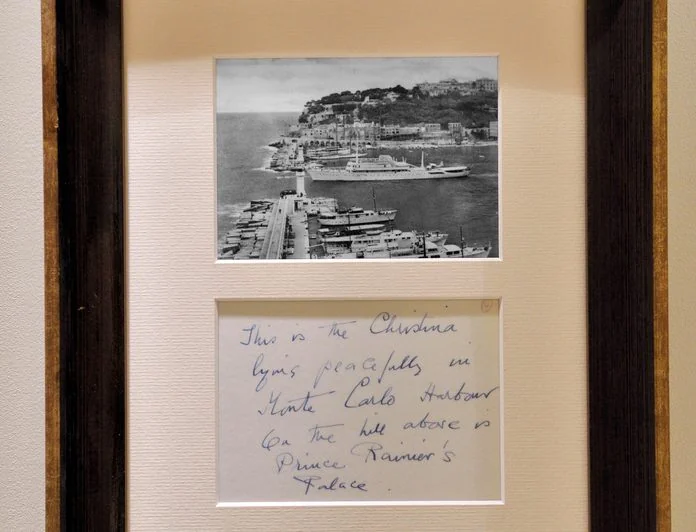 This is the Christina
lying peacefully in
Monte Carlo Harbour
On the hill above is
Prince Rainier's
Palace.